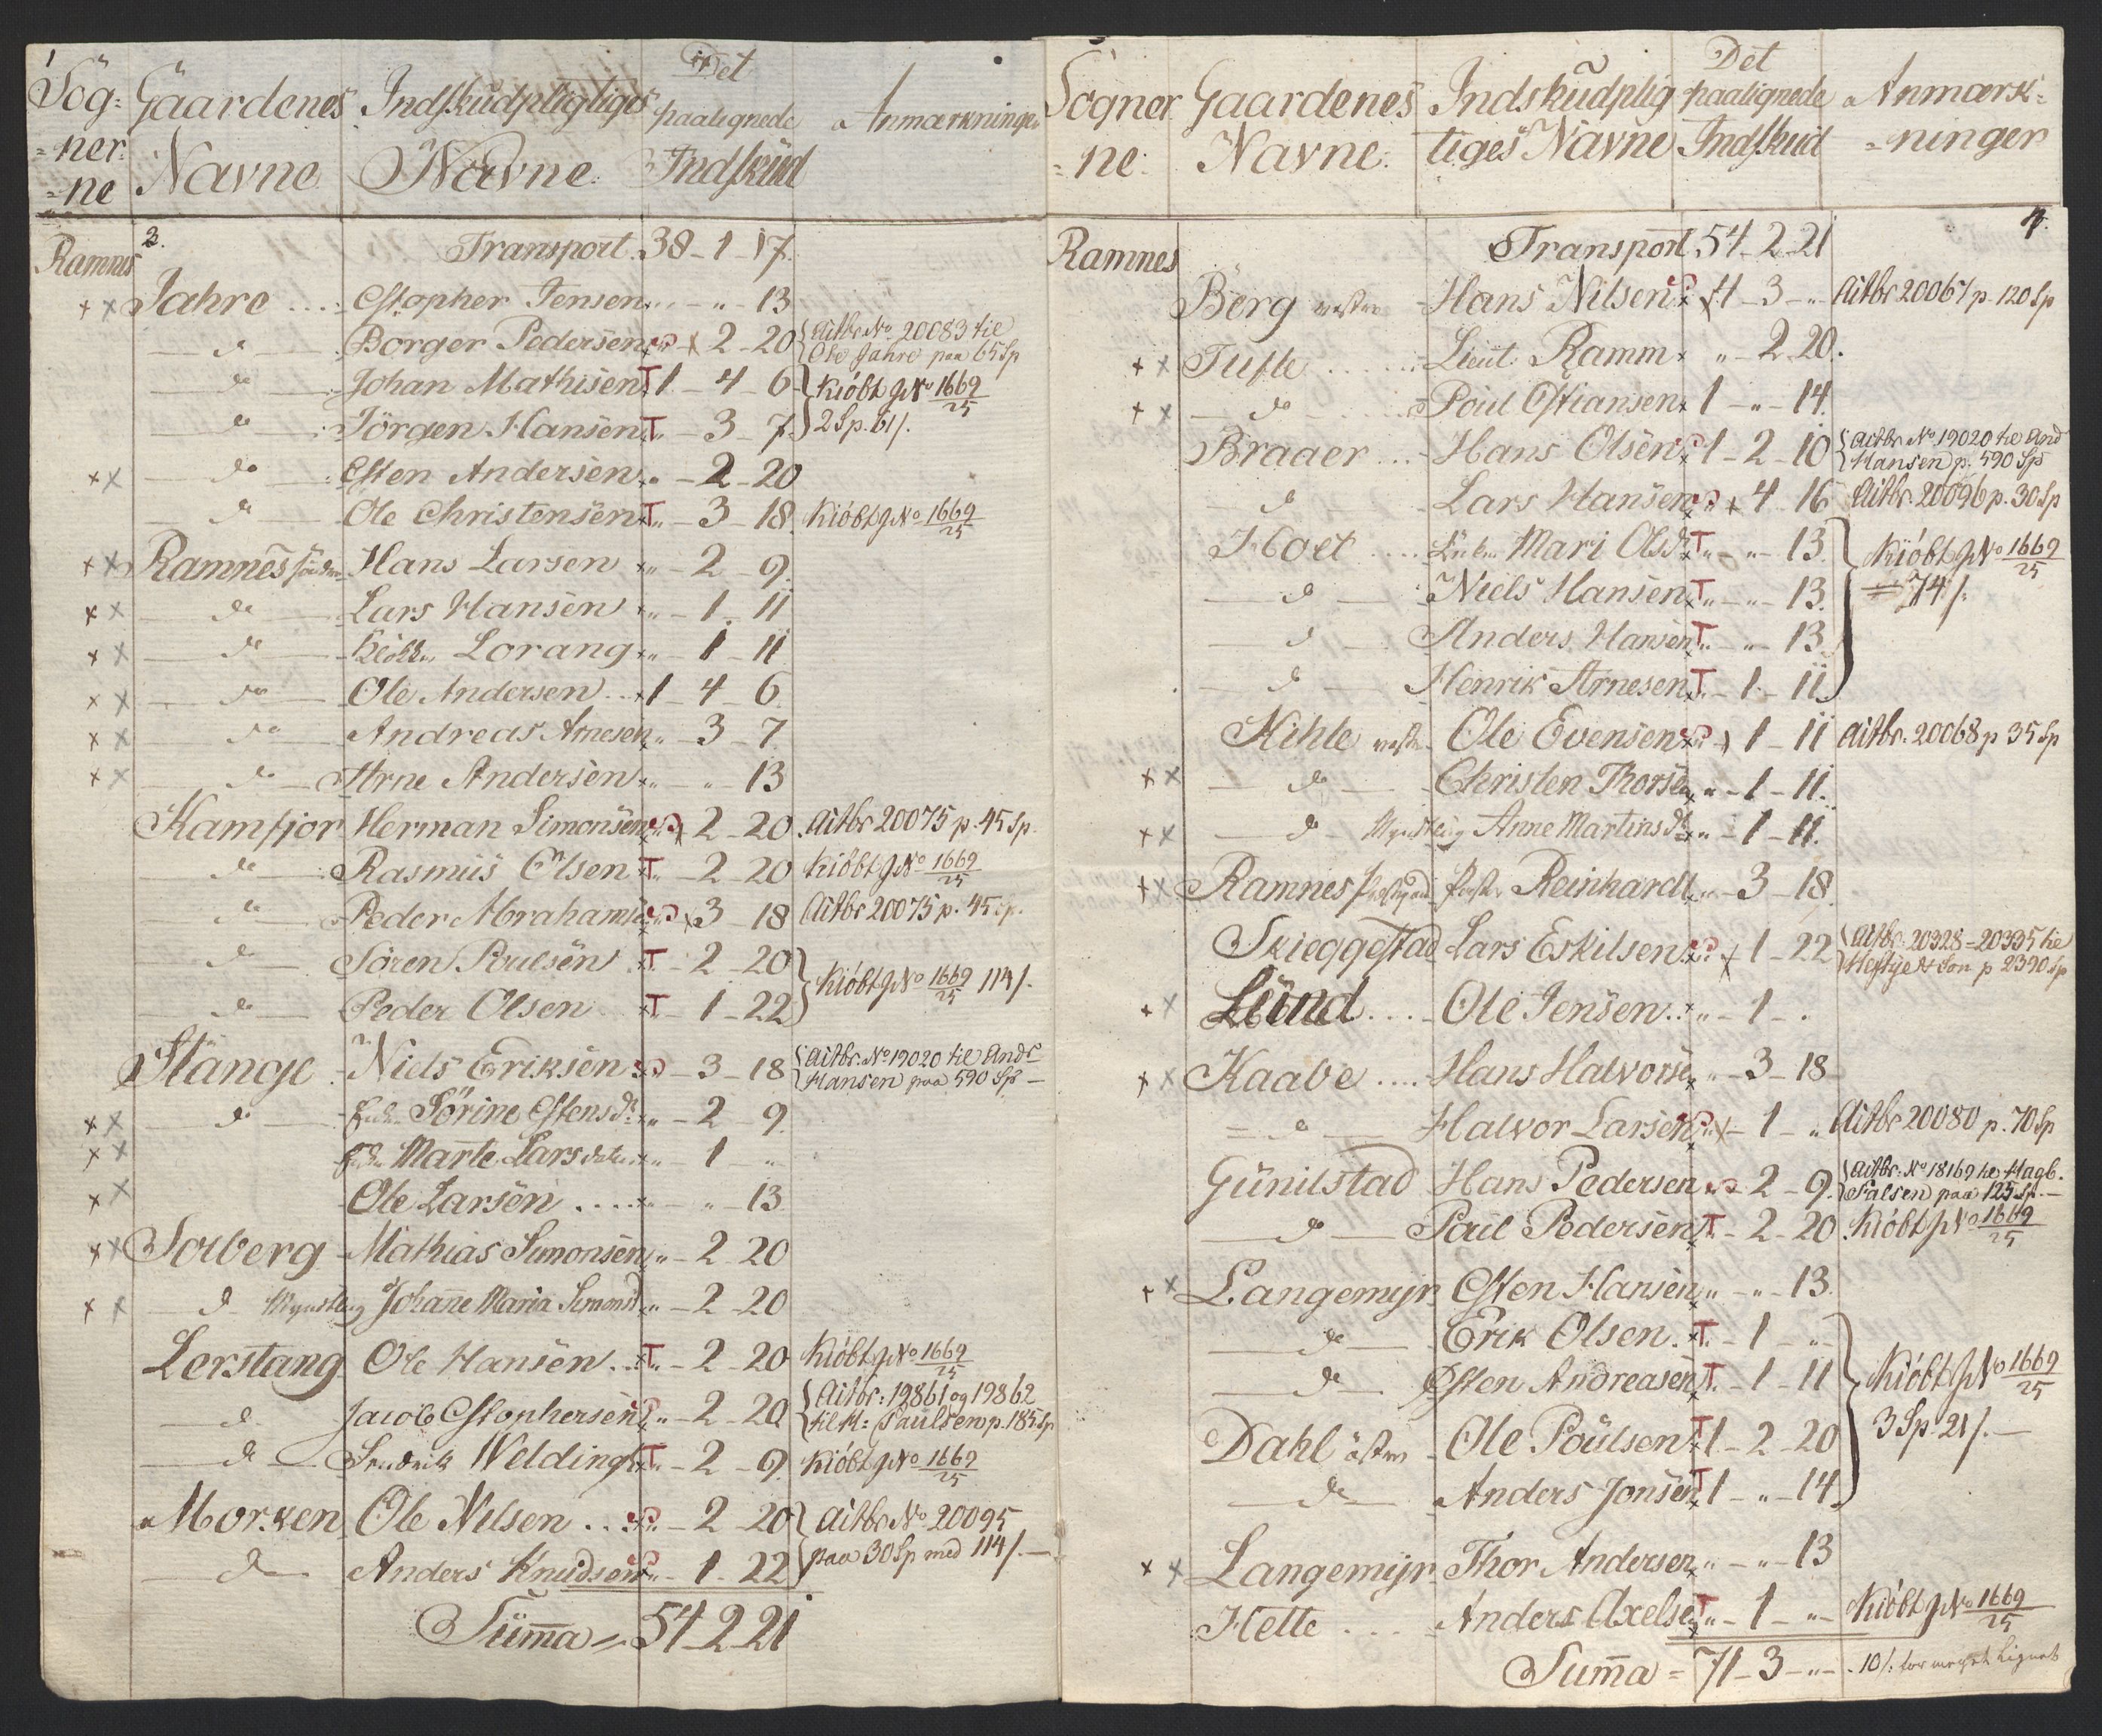 1
Sög= Gaardenes Indskudpligtiges Det Anmærkninger
=ner= Navne Navne paalignede
=ne Indskud
Ramnes 3. Transport 38 - 1 - 17.
×× Jahre .... Cstopher Jensen „ - „ - 13
do Borger Pedersen × 2 - 20 { Aitbr No. 20083 til Ole Jahre paa 65 Sp
do Johan Mathisen T 1 - 4 - 6 } Kiöbt J No 1669/25
do Jörgen Hansen T „ - 3 - 7. } 2 Sp. 61 s.
×× do Esten Andersen „ - 2 - 20
do Ole Christensen T „ - 3 - 18. Kiöbt J No 1669/25
×× Ramnes söndre Hans Larsen „ - 2 - 9.
×× do Lars Hansen „ - 1 - 11
×× do Lorang „ - 1 - 11
×× do Ole Andersen .. 1 - 4 - 6.
×× do Andreas Arnesen „ - 3 - 7.
×× do Arne Andersen „ - „ - 13
Kamfjor Herman Simonsen × 2 - 20. Aitbr 20075 p. 45 Sp.
do Rasmus Olsen T „ - 2 - 20 Kiöbt J No 1669/25
do Peder Abrahamse × 3 - 18 Aitbr 20075 p. 45 Sp.
do Sören Poulsen T - 2 - 20 } Kiöbt J No 1669/25 114 s.
do Peder Olsen T - 1 - 22 }
Stange Niels Eriksen - 3 - 18 { Aitbr. No 19020 til Andr Hansen paa 590 Sp -
×× do Enke Sörine Estensdr „ - 2 - 9.
×× Enke Marte Larsdatter „ - 1 - „
×× Ole Larsen .... „ - „ - 13.
×× Solberg Mathias Simonsen „ - 2 - 20
×× do Myndtling Johanne Maria Simonsd „ - 2 - 20
Lerstang Ole Hansen .. T „ - 2 - 20 Kiöbt J No 1669/25
do Jacob Cstophersen „ - 2 - 20 { Aitbr: 19861 og 19862 til H: Paulsen p. 185 Sp
do Fredrik Welding T „ - 2 - 9. Kiöbt J No 1669/25
Morken Ole Nilsen .. „ - 2 - 20 } Aitbr No 20095
do Anders Knudsen „ - 1 - 22 } paa 30 Sp med 114 s. -
Summa = 54 - 2 - 21
Sogner Gaardenes Indskudplig Det Anmærk=
=ne: Navne. tiges Navne paalignede =ninger
Indskud
Ramnes Transport 54 - 2 - 21 4.
Berg vestre Hans Nilsen × 4 - 3 - „ Aitbr 20067 p. 120 Sp
×× Tufte ...... Lieut. Ramm „ - 2 - 20.
×× do Poul Cstiansen 1 - „ - 14.
Braaer ... Hans Olsen 1 - 2 - 10 { Aitbr No. 19020 til And Hansen p. 590 Sp
do Lars Hansen × 4 - 16 Aitbr. 20096 p. 30 Sp
Hoet .... Enke Mari Olsd T „ - „ - 13. } Kiöbt J No 1669/25
do Niels Hansen T „ - „ - 13. } = 74 s.
do Anders Hansen T „ - „ - 13 }
do Henrik Arnesen T „ - 1 - 11 }
Kihle vestre Ole Evensen × 1 - 11 Aitbr. 20068 p 35 Sp
×× do Christen Thorse „ - 1 - 11.
×× do Myndtling Anne Martinsdr „ - 1 - 11.
×× Ramnes Præstegaard Pastor Reinhardt „ - 3 - 18.
Skieggestad Lars Eskilsen × 1 - 22 { Aitbr. 20328 = 20335 til Heftye & Son p 2390 Sp
×× Lund .... Ole Jensen .. „ - 1 - .
×× Kaabe .... Hans Halvorse „ - 3 - 18
do Halvor Larsen × - 1 - „ Aitbr 20080 p. 70 Sp
Gunilstad Hans Pedersen 2 - 9. { Aitbr. No 18169 til Hagb. Falsen paa 125 Sp. -
do Paul Pedersen T - 2 - 20. Kiöbt J No 1669/25
×× Langemyr Esten Hansen „ - „ - 13.
do Erik Olsen. T „ - 1 - „ }
do Østen Andreasen T - 1 - 11 } Kiöbt J No 1669/25
Dahl östre Ole Poulsen T 1 - 2 - 20 } 3 Sp. 21 s. -
do Anders Jonsen T 1 - „ - 14. }
×× Langemyr Thor Andersen „ - „ - 13
Hette .... Anders Axelse T „ - 1 - „ Kiöbt J No 1669/25
Summa = 71 - 3 - „ - 10 s. for meget Lignet